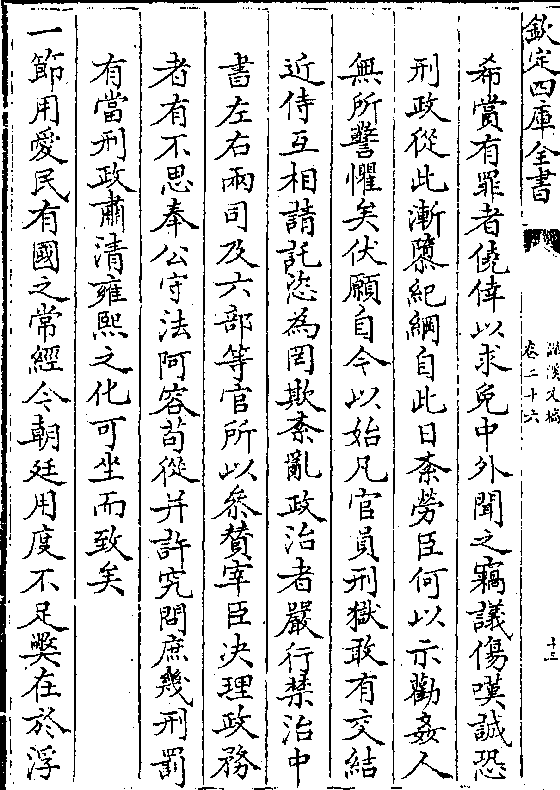 欽定四庫全書
滋溪文稿
卷二十六
十三
希賞有罪者僥倖以求免中外聞之竊議傷嘆誠恐
刑政從此漸隳紀綱自此日紊勞臣何以示勸姦人
無所警懼矣伏願自今以始凡官員刑獄敢有交結
近侍互相請託恣為罔欺紊亂政治者嚴行禁治中
書左右兩司及六部等官所以叅贊宰臣決理政務
者有不思奉公守法阿容苟從并許究問庶幾刑罰
有當刑政肅清雍熙之化可坐而致矣
一節用愛民有國之常經今朝廷用度不足弊在於浮